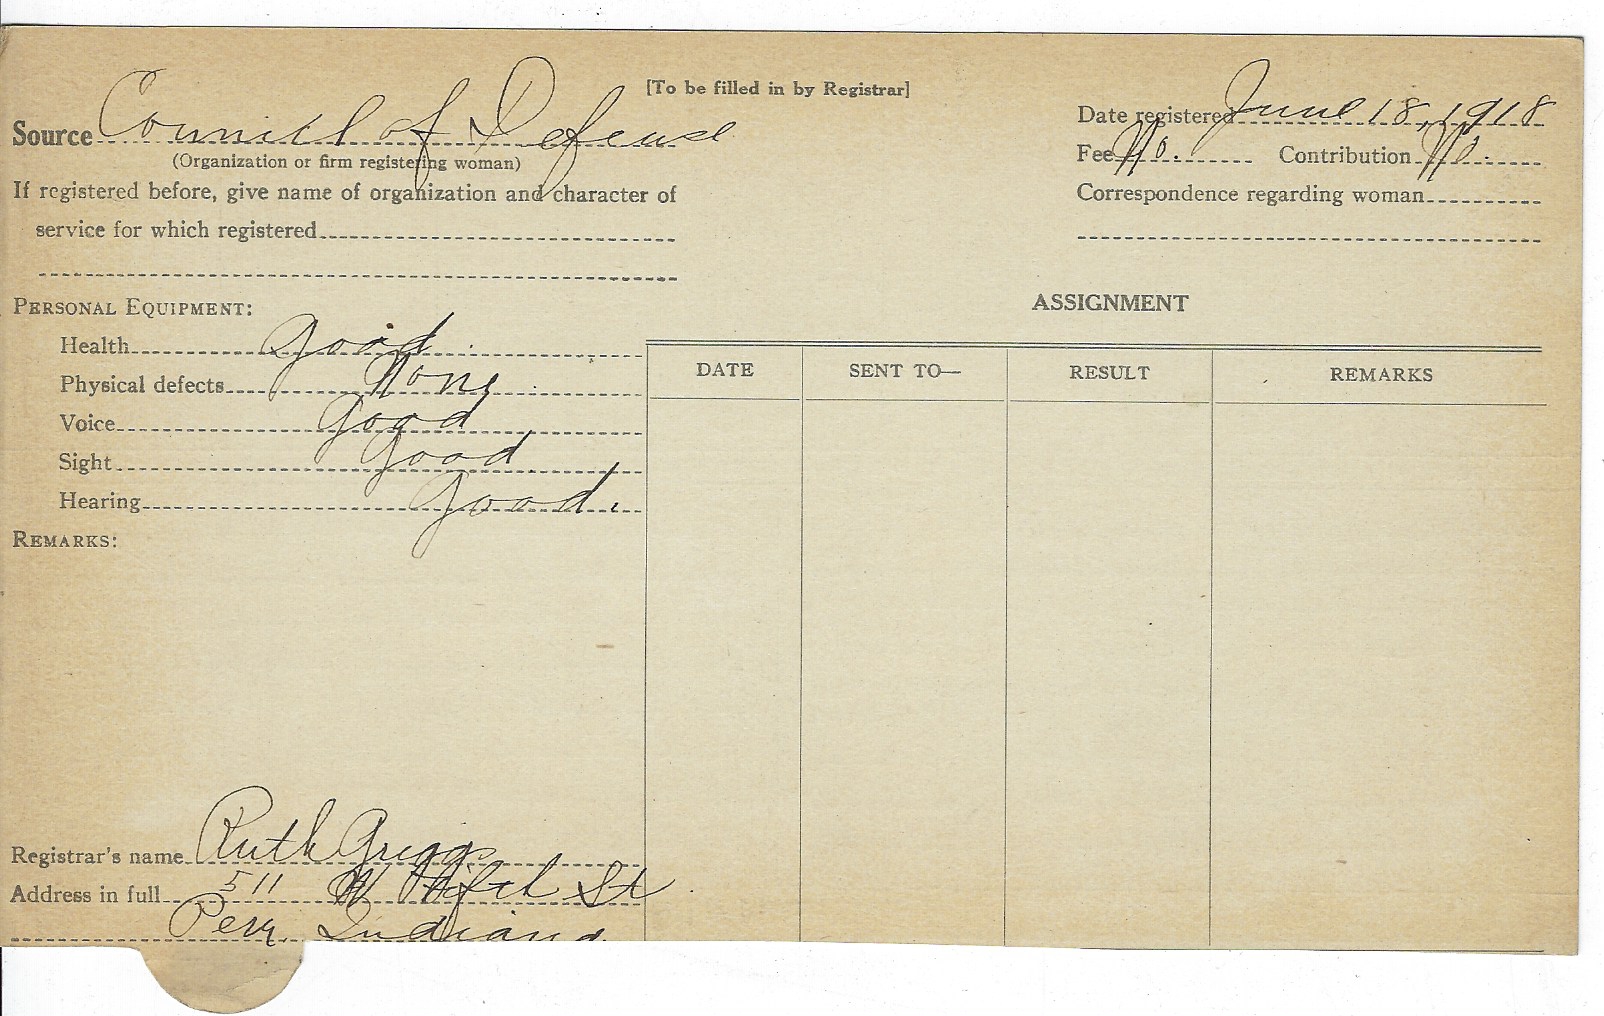 [To be filled in by Registrar]
Source Council of Defense
(Organization or firm registering woman)
If registered before, give name of organization and character of
service for which registered
Date registered June 18, 1918
Fee No. Contribution No.
Correspondence regarding woman
PERSONAL EQUIPMENT:
Health Good.
Physical defects None
Voice Good
Sight Good
Hearing Good.
REMARKS:
ASSIGNMENT
DATE SENT TO— RESULT REMARKS
Registrar's name Ruth Griggs
Address in full 511 W Fifth St
Peru, Indiana